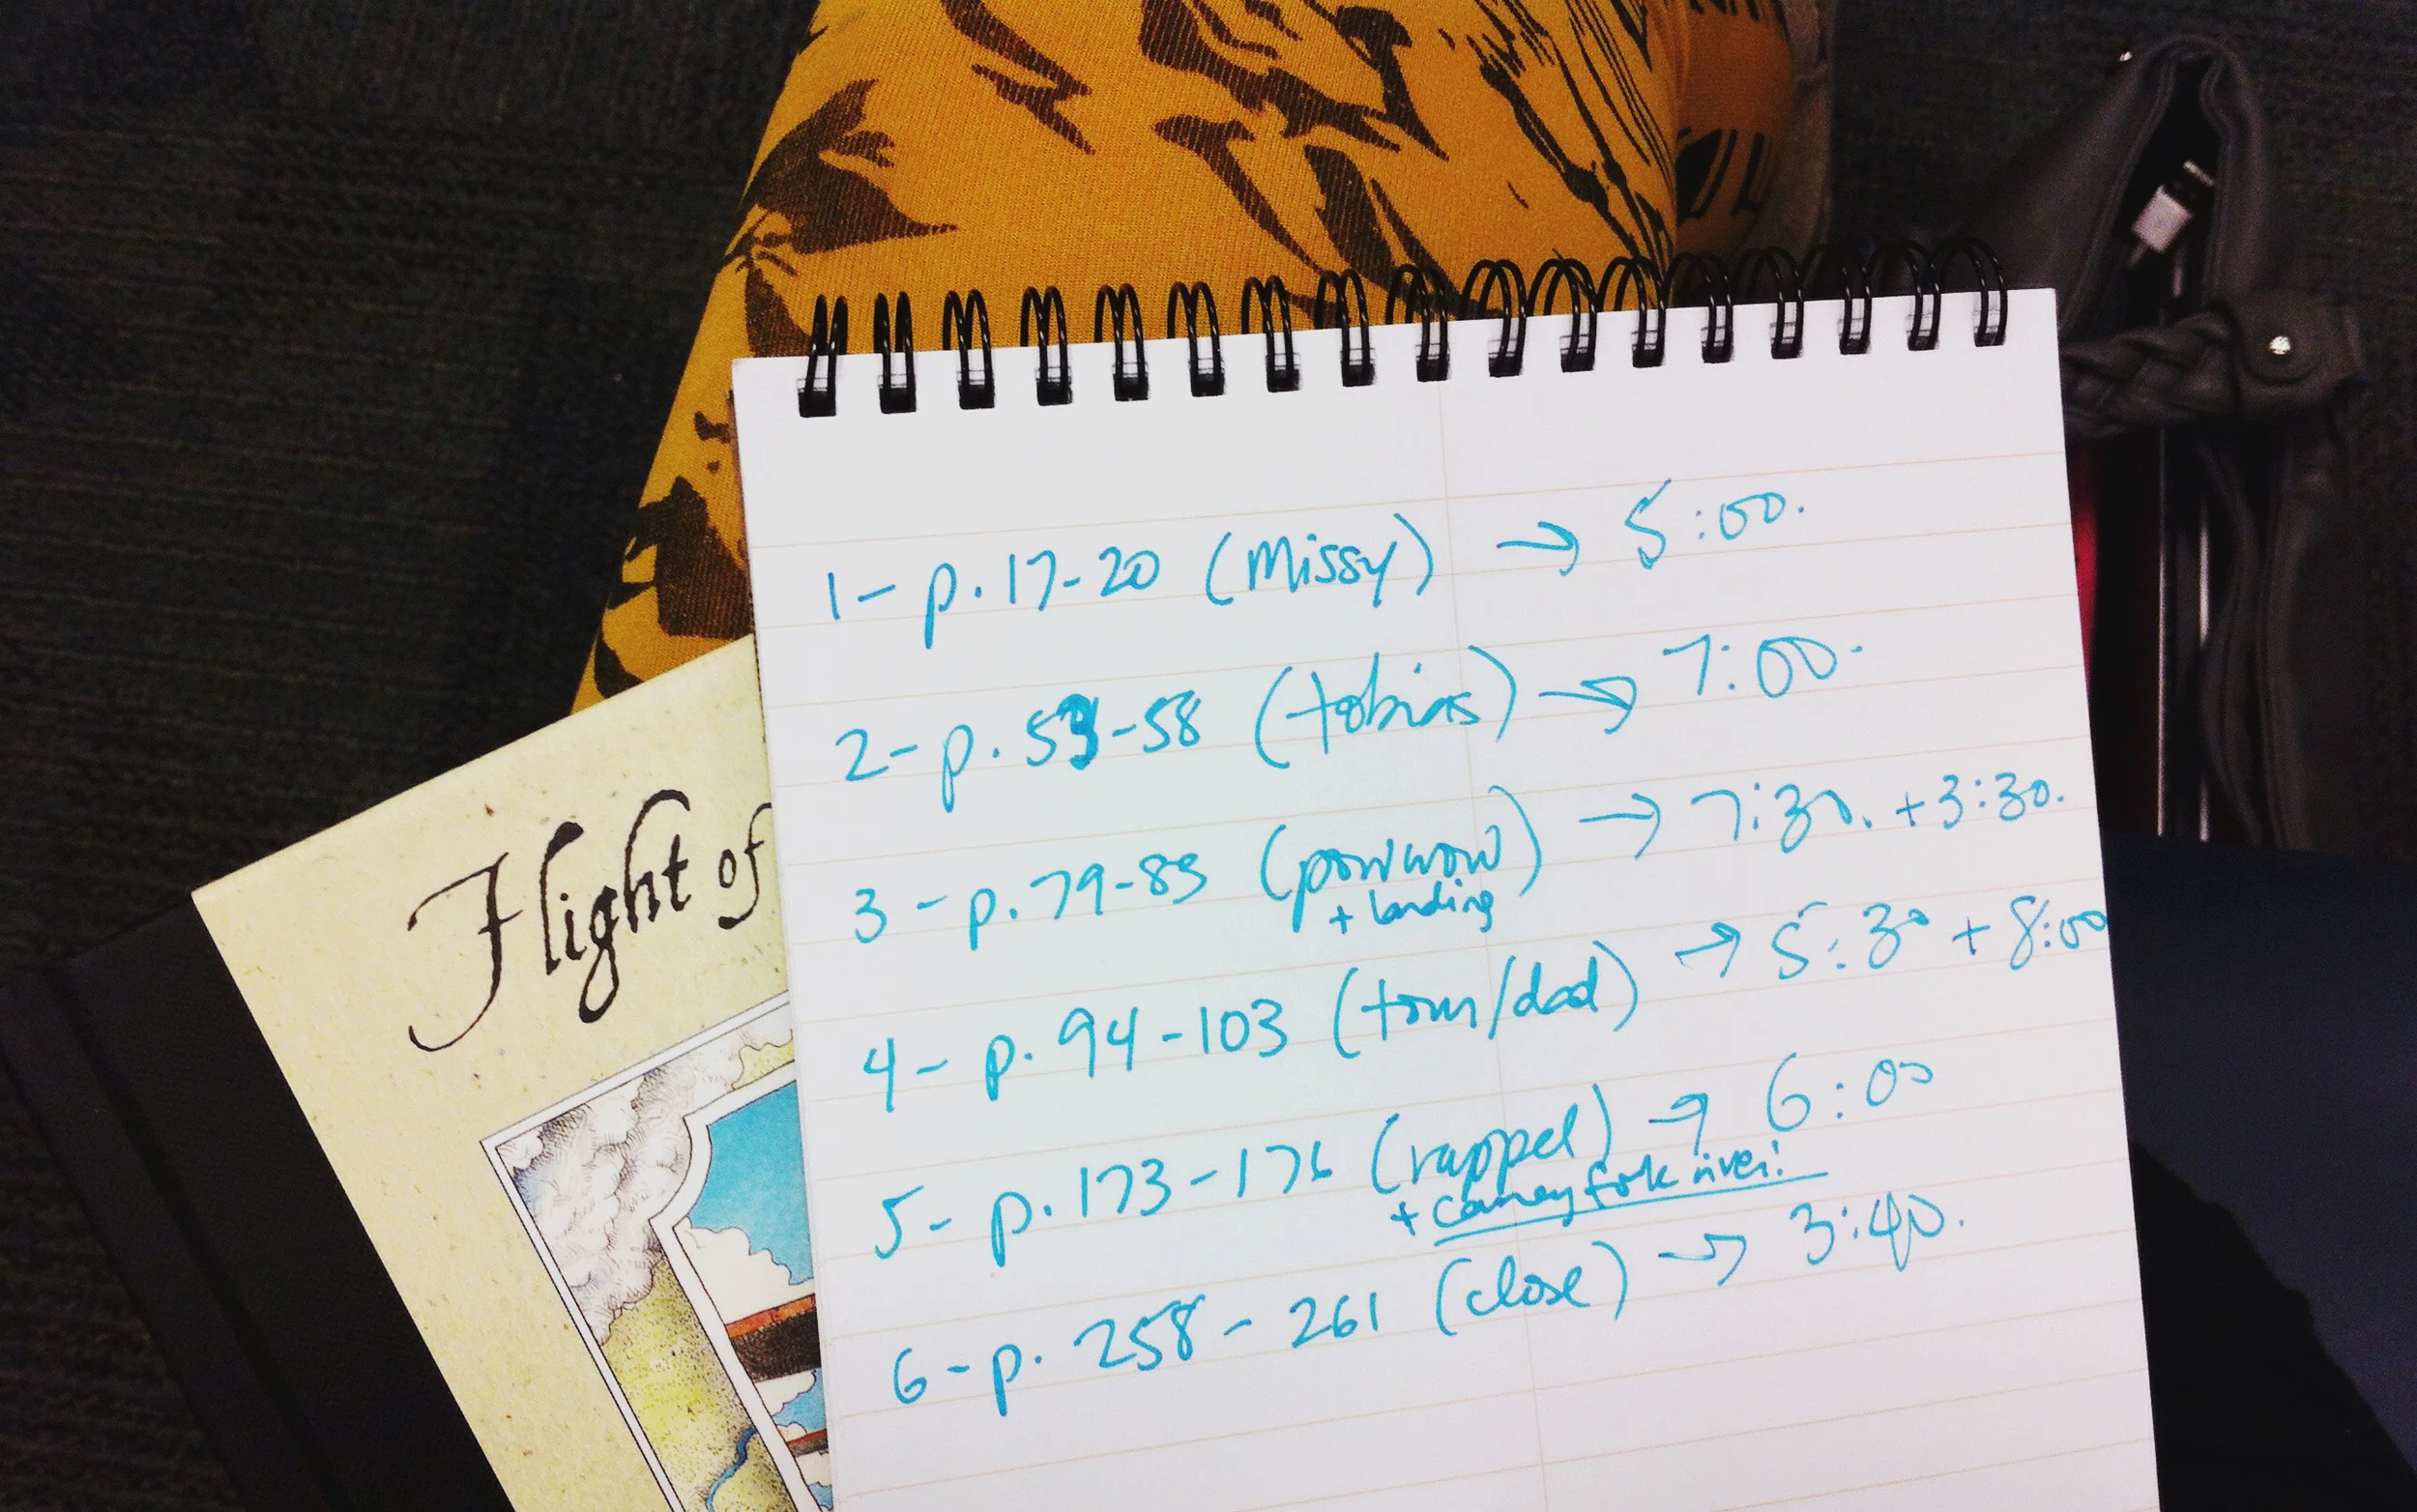 1- p. 17-20 (Missy) → 5:00.
2- p. 53-58 (tobias) → 7:00.
3- p. 79-83 (powwow) → 7:30. +3:30.
+ landing
4- p. 94-103 (tom/dad) → 5:30 + 8:00
5- p. 173-176 (rappel) → 6:00
+ caney fork river!
6- p. 258-261 (close) → 3:40.
Flight of